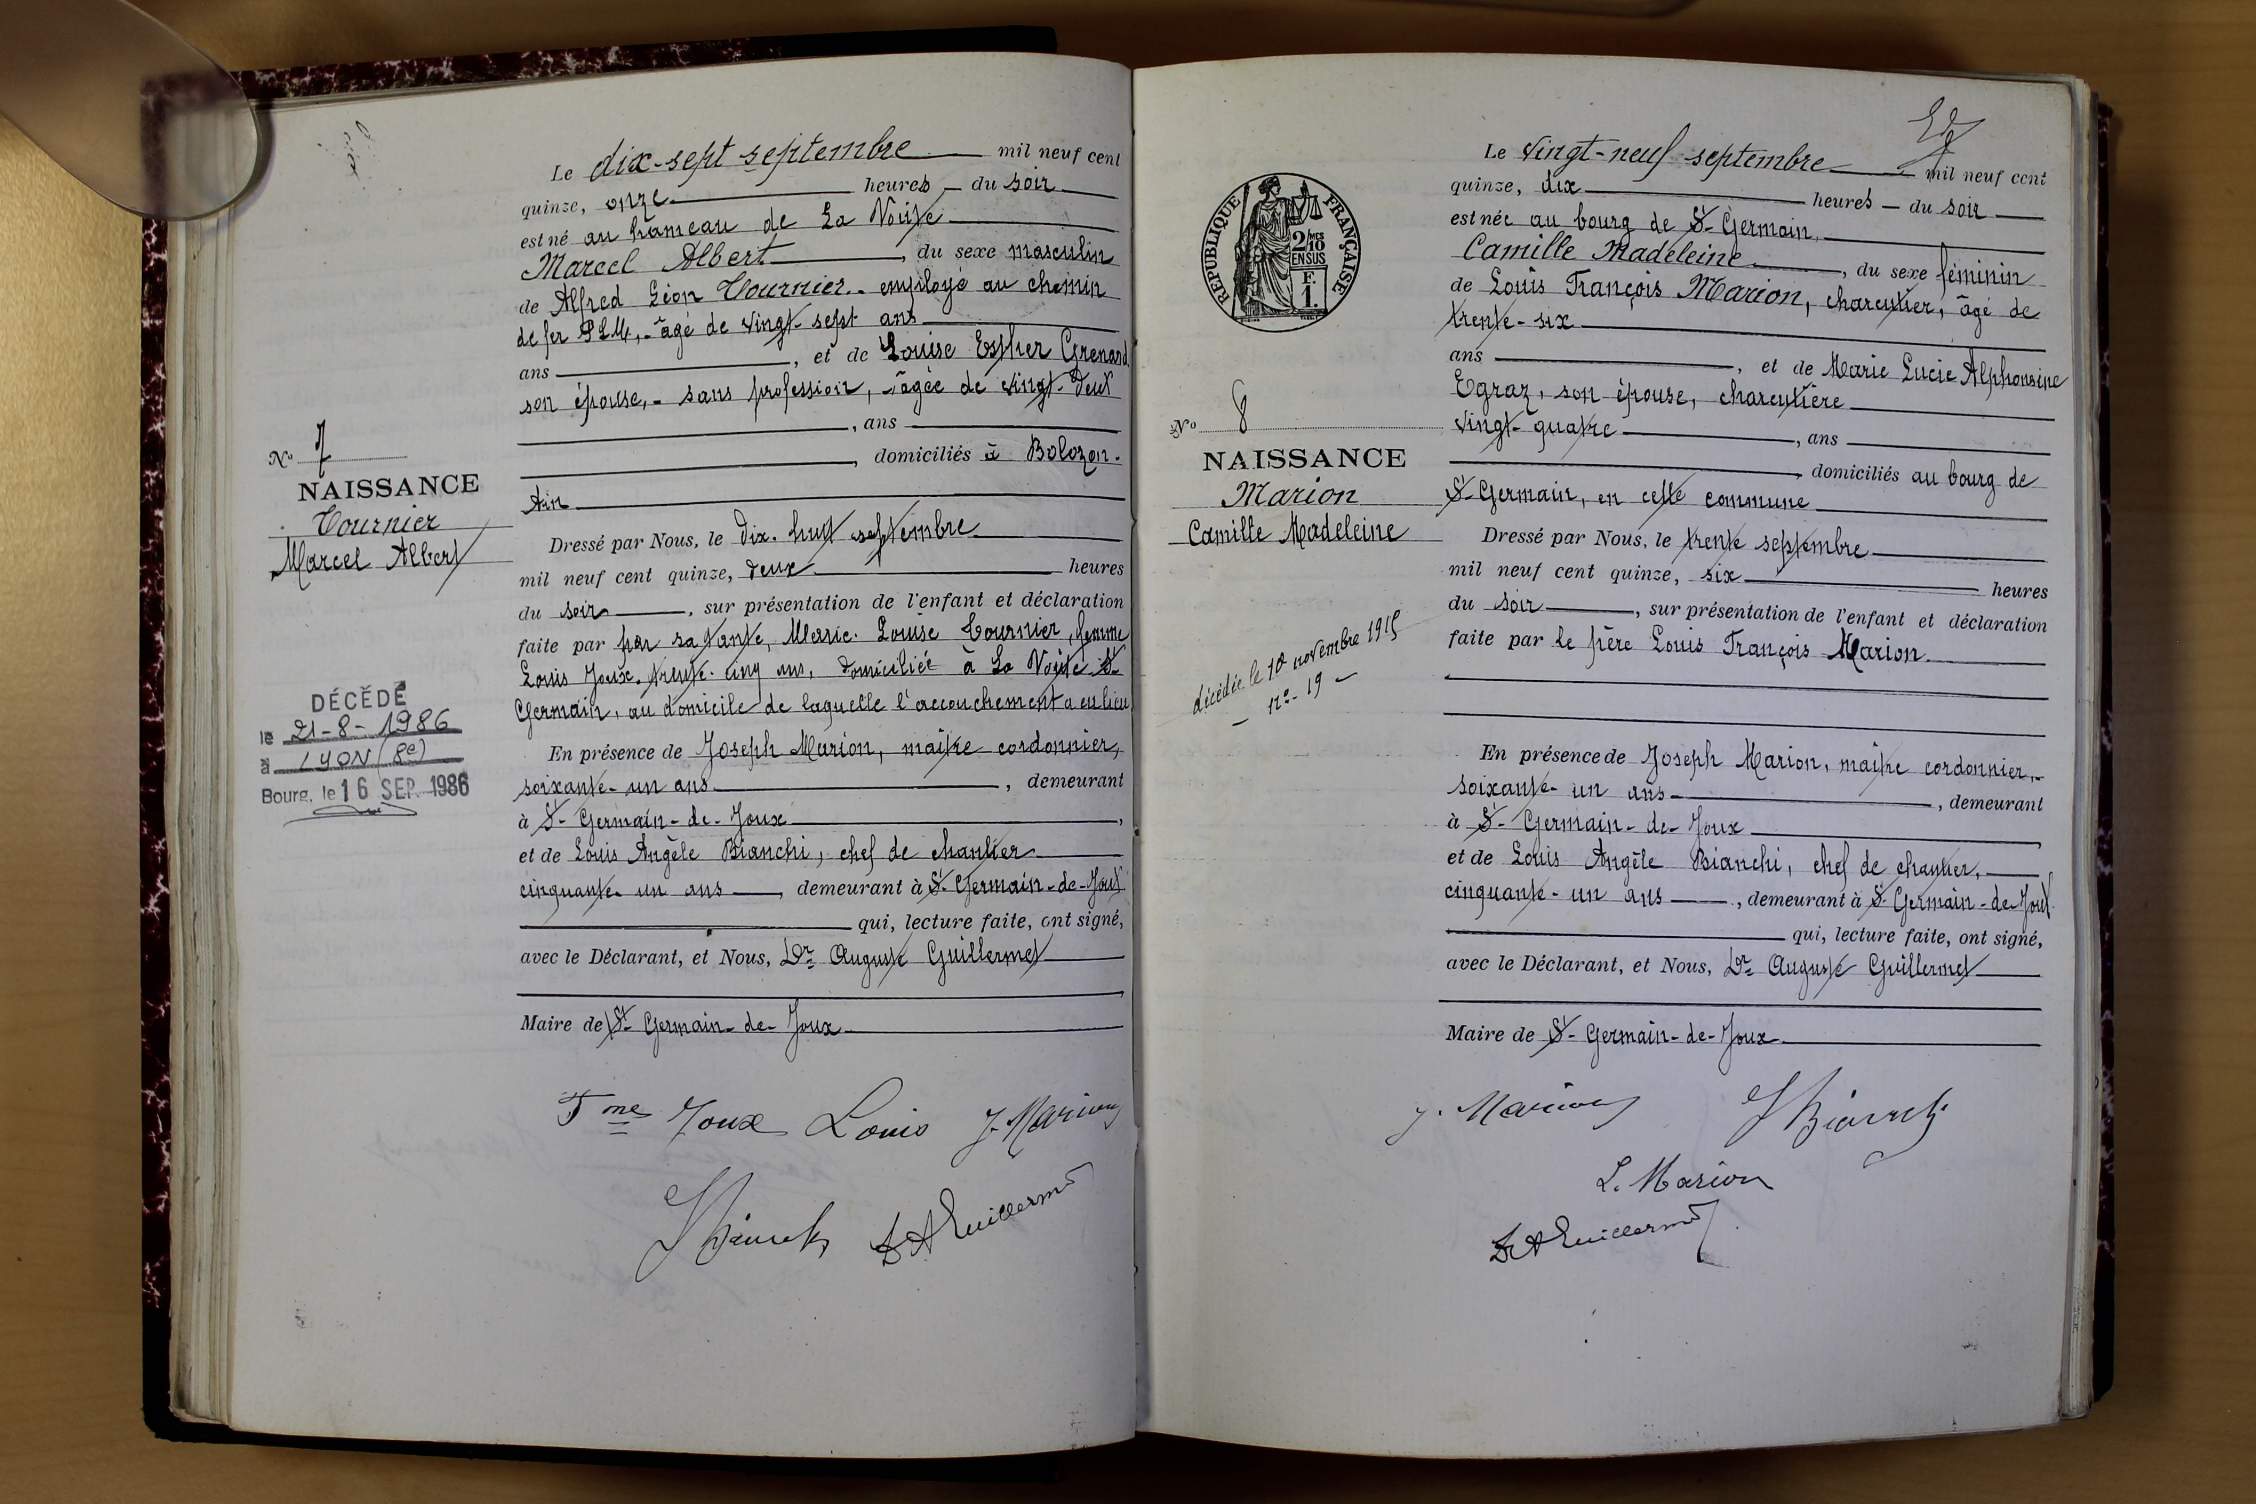 Le dix-sept septembre mil neuf cent
quinze, onze heures du soir
est né au hameau de La Voûte
Marcel Albert, du sexe masculin
de Alfred Léon Tournier - employé au chemin
de fer PLM, - âgé de vingt-sept ans
ans, et de Louise Esther Grenard
son épouse, - sans profession, - âgée de vingt-deux
, ans
, domiciliés à Bolozon.
Ain
No 7
NAISSANCE
Tournier
Marcel Albert
Dressé par Nous, le dix-huit septembre
mil neuf cent quinze, deux heures
du soir, sur présentation de l'enfant et déclaration
faite par par sa tante, Marie-Louise Tournier, femme
Louis Joux, trente-cinq ans, domiciliée à La Voûte St
Germain, au domicile de laquelle l'accouchement a eu lieu
DÉCÉDÉ
le 21-8-1986
à LYON (8e)
Bourg, le 16 SEP. 1986
En présence de Joseph Marion, maître cordonnier,
soixante-un ans, demeurant
à St-Germain-de-Joux,
et de Louis Angèle Bianchi, chef de chantier
cinquante-un ans, demeurant à St-Germain-de-Joux
qui, lecture faite, ont signé,
avec le Déclarant, et Nous, Dr Auguste Guillermet
Maire de St-Germain-de-Joux
Fme Joux Louis J. Marion
Bianchi Dr A Guillermet
Le vingt-neuf septembre mil neuf cent
quinze, dix heures - du soir
est née au bourg de St-Germain,
Camille Madeleine, du sexe féminin
de Louis François Marion, charcutier, âgé de
trente-six
ans, et de Marie Lucie Alphonsine
Egraz, son épouse, charcutière
vingt-quatre, ans
domiciliés au bourg de
St-Germain, en cette commune
RÉPUBLIQUE FRANÇAISE
2/10
EN SUS
F.
1.
No 8
NAISSANCE
Marion
Camille Madeleine
Dressé par Nous, le trente septembre
mil neuf cent quinze, six heures
du soir, sur présentation de l'enfant et déclaration
faite par le père Louis François Marion
décédée le 10 novembre 1915
- no - 19 -
En présence de Joseph Marion, maître cordonnier,-
soixante-un ans, demeurant
à St-Germain-de-Joux
et de Louis Angèle Bianchi, chef de chantier,
cinquante-un ans, demeurant à St-Germain-de-Joux
qui, lecture faite, ont signé,
avec le Déclarant, et Nous, Dr Auguste Guillermet
Maire de St-Germain-de-Joux
J. Marion Bianchi
L. Marion
Dr A Guillermet